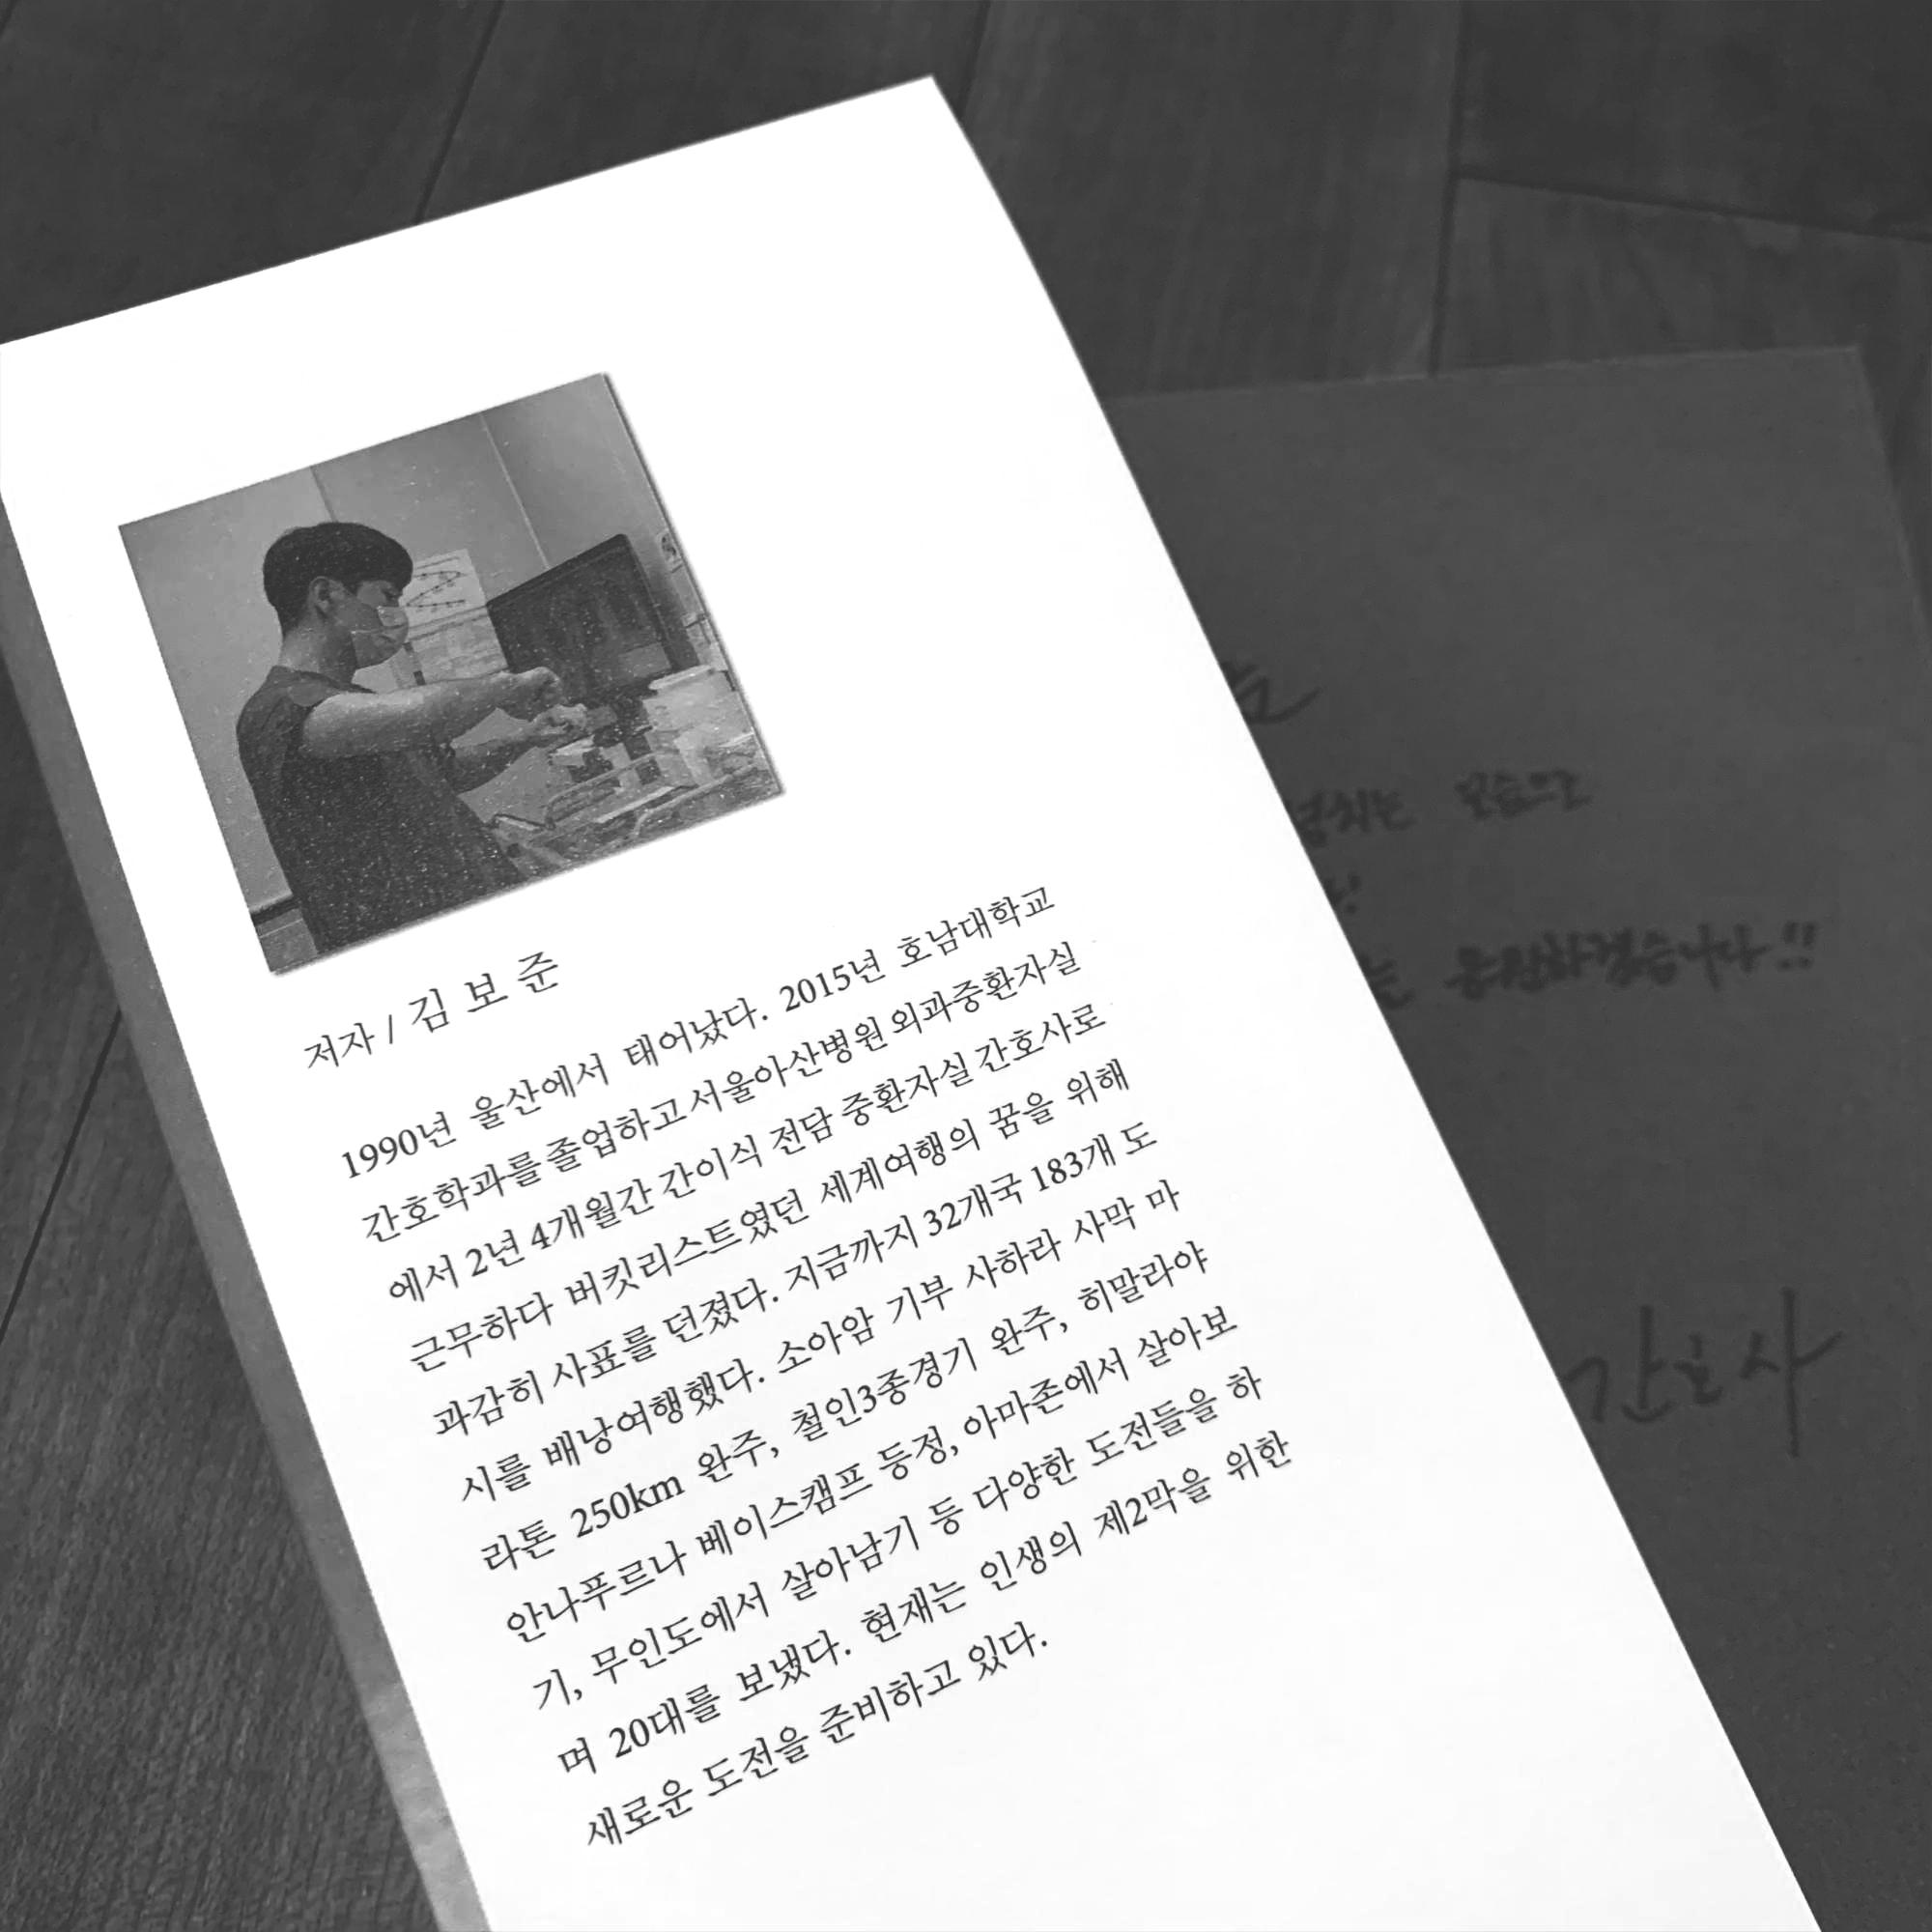 저자 / 김 보 준
1990년 울산에서 태어났다. 2015년 호남대학교
간호학과를 졸업하고 서울아산병원 외과중환자실
에서 2년 4개월간 간이식 전담 중환자실 간호사로
근무하다 버킷리스트였던 세계여행의 꿈을 위해
과감히 사표를 던졌다. 지금까지 32개국 183개 도
시를 배낭여행했다. 소아암 기부 사하라 사막 마
라톤 250km 완주, 철인3종경기 완주, 히말라야
안나푸르나 베이스캠프 등정, 아마존에서 살아보
기, 무인도에서 살아남기 등 다양한 도전들을 하
며 20대를 보냈다. 현재는 인생의 제2막을 위한
새로운 도전을 준비하고 있다.
넘치는 모습으로
응원하겠습니다!!
간호사